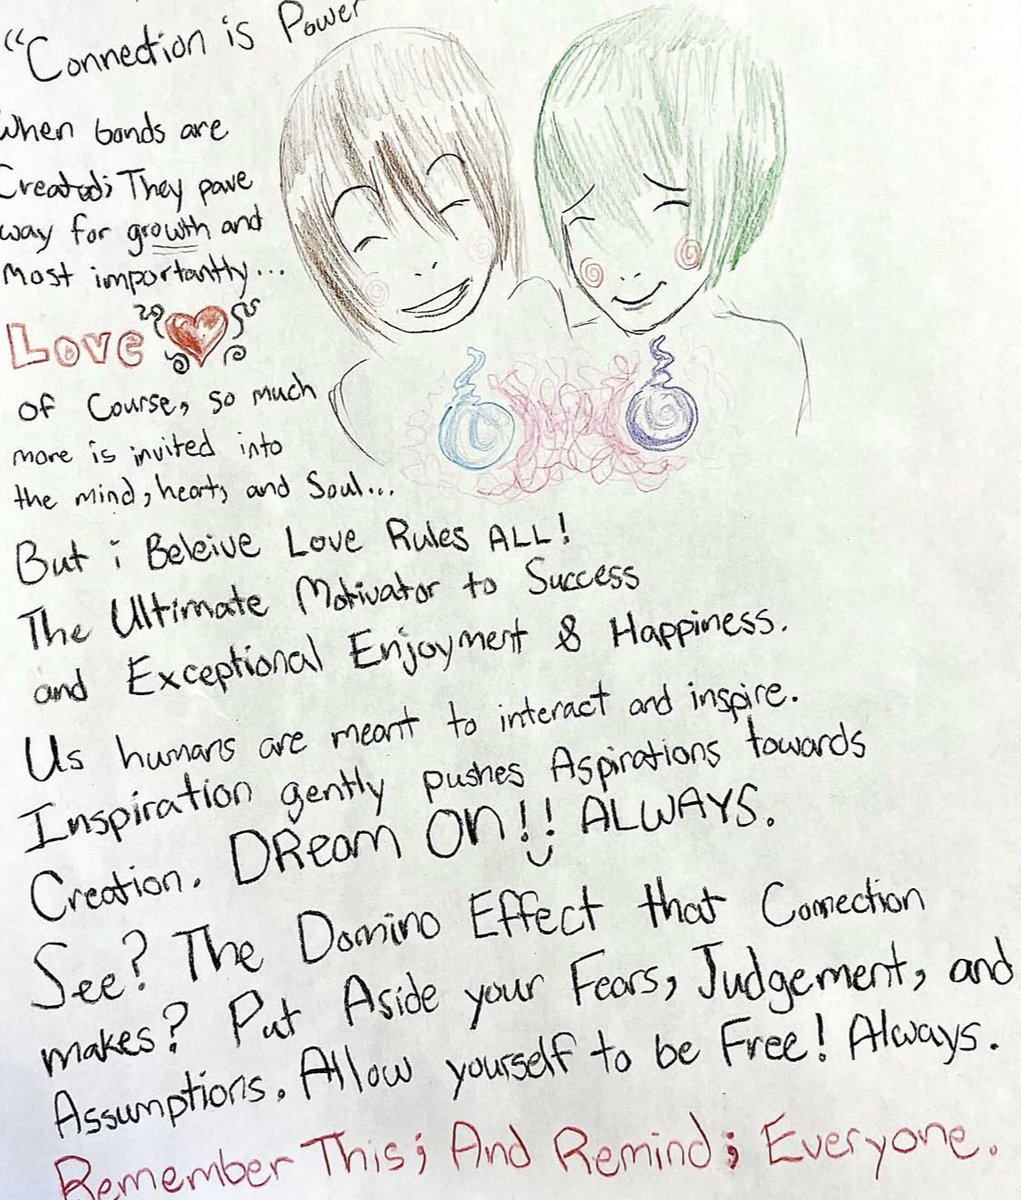 “Connection is Power
When bonds are
Created; They pave
way for growth and
most importantly...
Love
of Course, so much
more is invited into
the mind, heart, and Soul...
But i Beleive Love Rules ALL!
The Ultimate Motivator to Success
and Exceptional Enjoyment & Happiness.
Us humans are meant to interact and inspire.
Inspiration gently pushes Aspirations towards
Creation. DReam ON!! ALWAYS.
See? The Domino Effect that Connection
makes? Put Aside your Fears, Judgement, and
Assumptions. Allow yourself to be Free! Always.
Remember This; And Remind; Everyone.